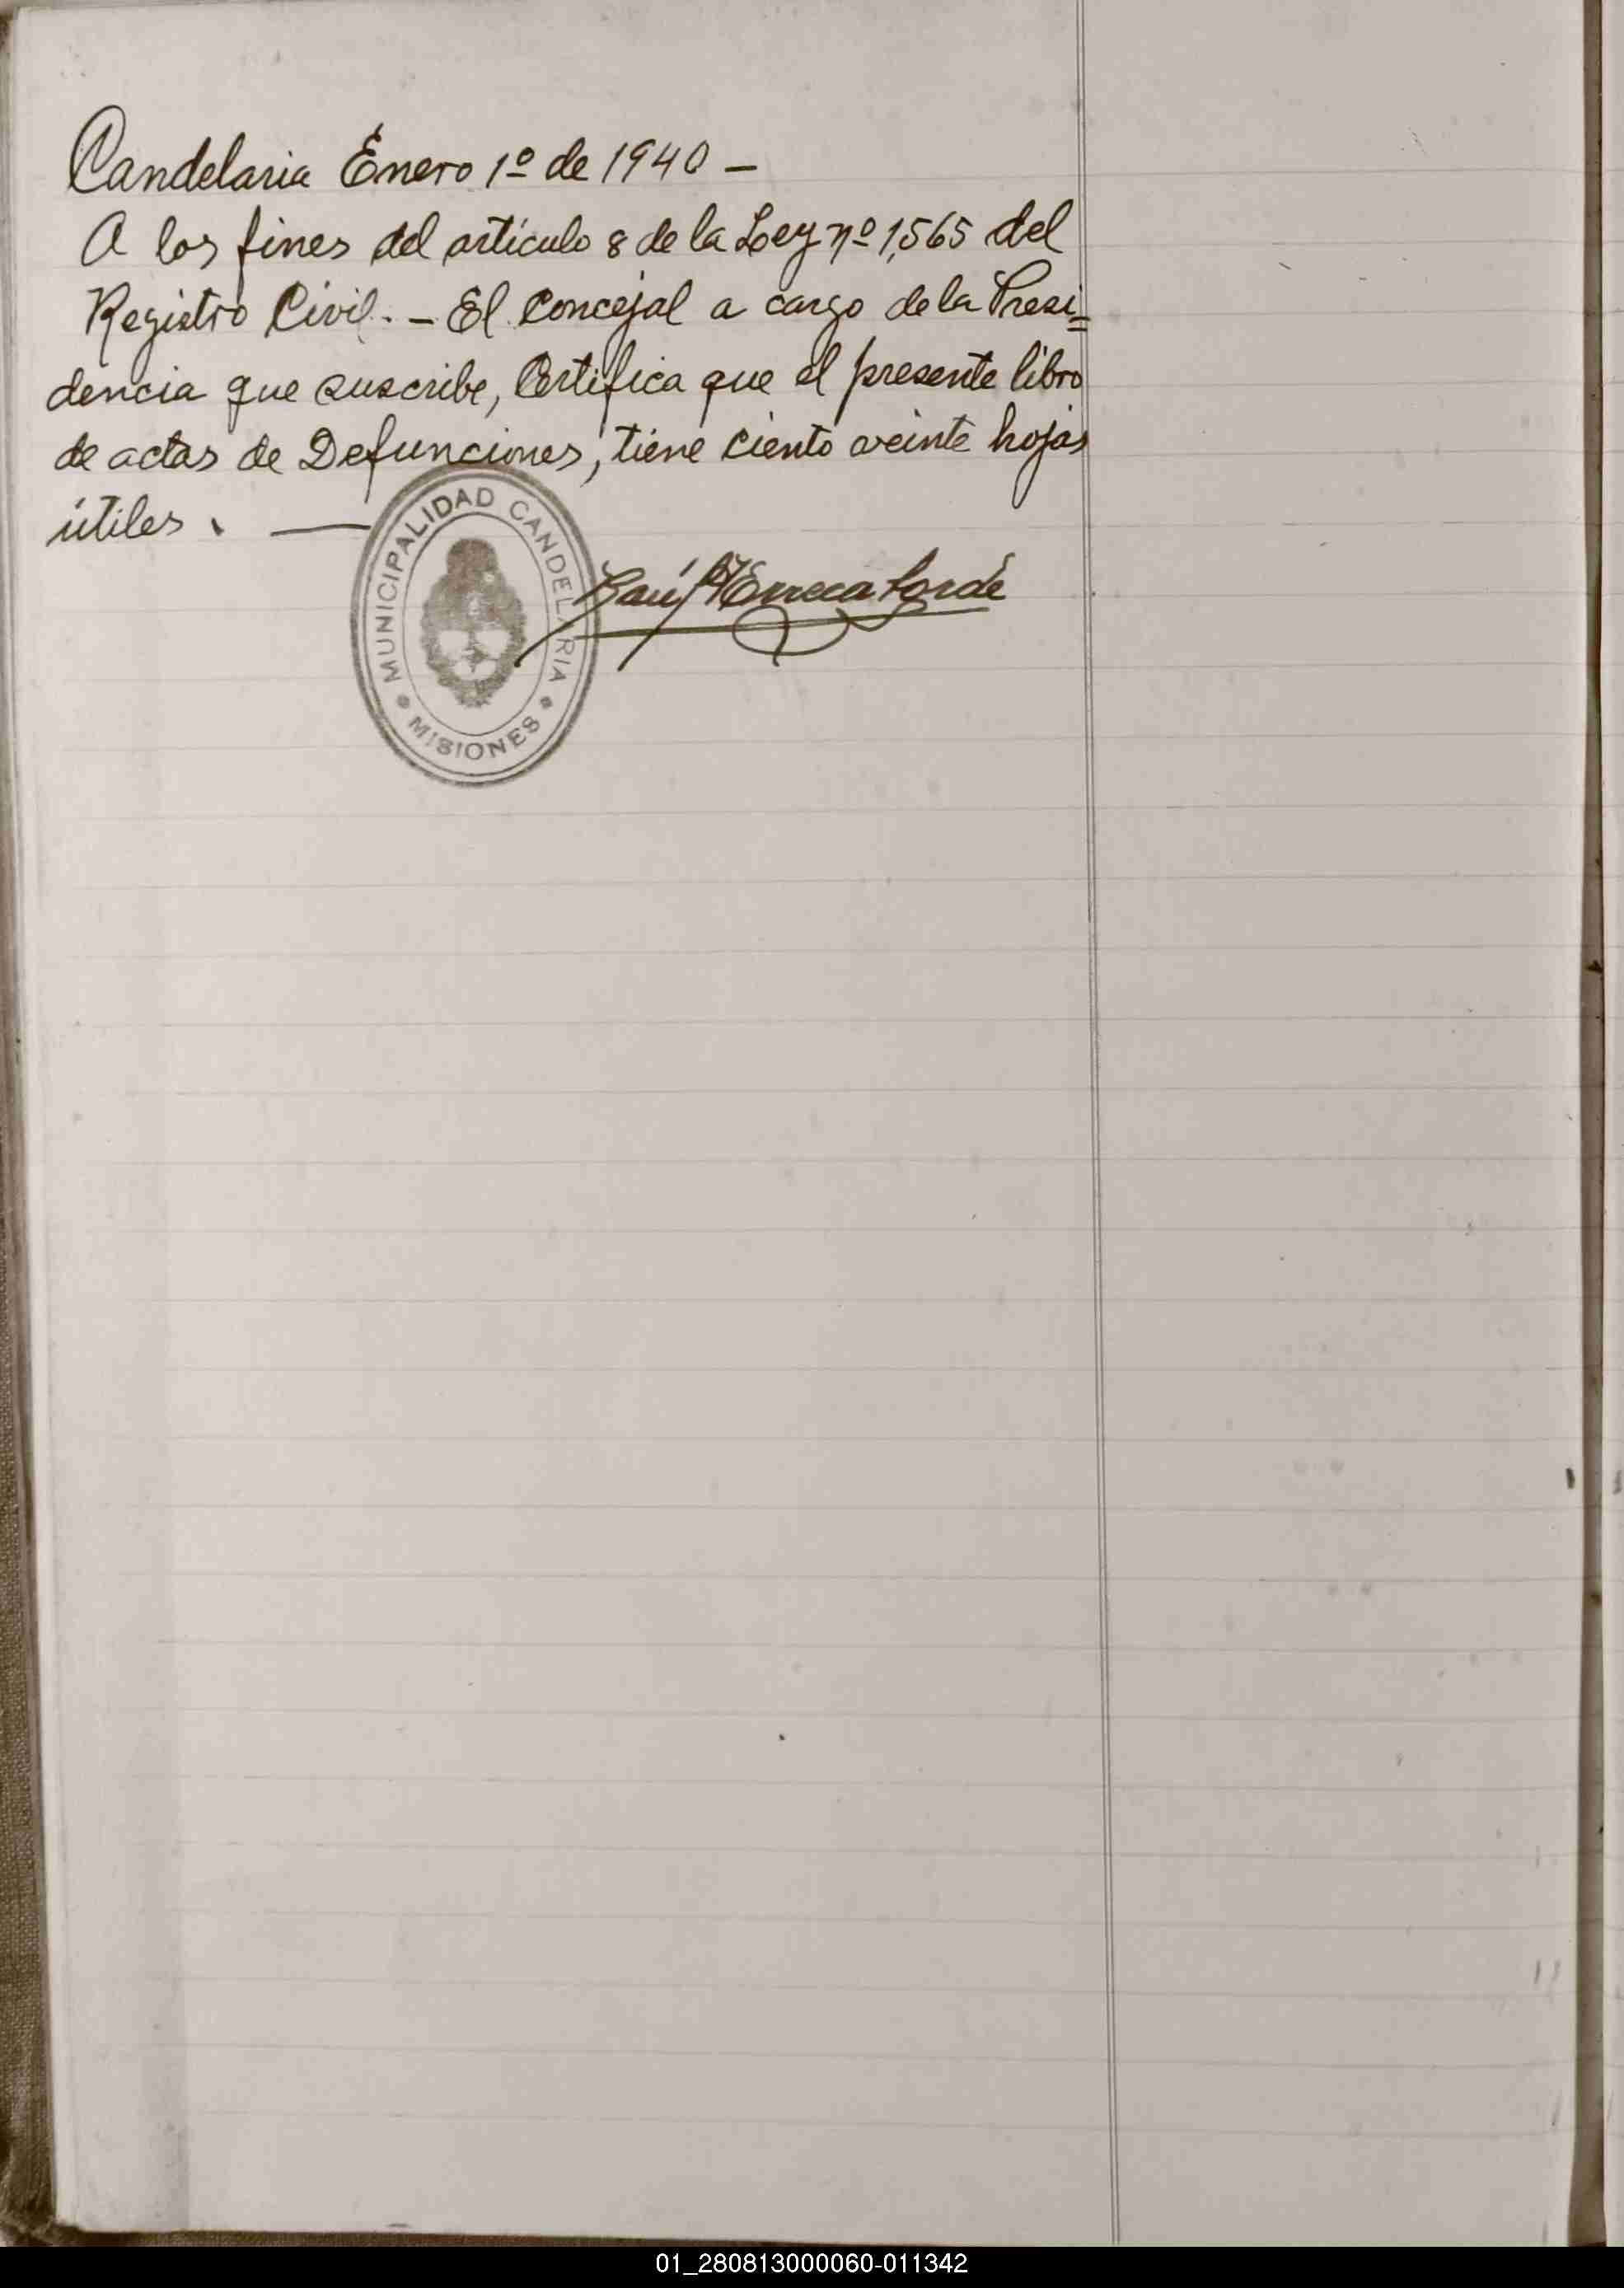 Candelaria Enero 1º de 1940 –
A los fines del artículo 8 de la Ley nº 1,565 del
Registro Civil. – El Concejal a cargo de la Presi=
dencia que suscribe, Certifica que el presente libro
de actas de Defunciones, tiene ciento veinte hojas
útiles. —
MUNICIPALIDAD CANDELARIA
MISIONES
Raúl
01_280813000060-011342